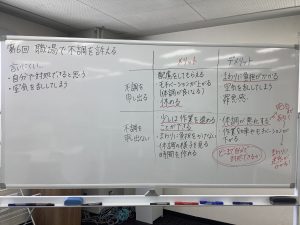 第6回 職場で不調を訴える
言いにくい
・自分で対処できると思う
・空気を乱してしまう
メリット
デメリット
不調を
申し出る
配慮をしてもらえる
モチベーションが上がる
(体調が良くなる)
休める
まわりに負担がかかる
空気を乱してしまう
罪悪感
不調を
申し出ない
少しは作業を進める
ことができる
・まわりに負担をかけない
体調の様子を見る
時間を作れる
・体調が悪化する
作業効率やモチベーション
が下がる
どこまで自分で
対処できるか